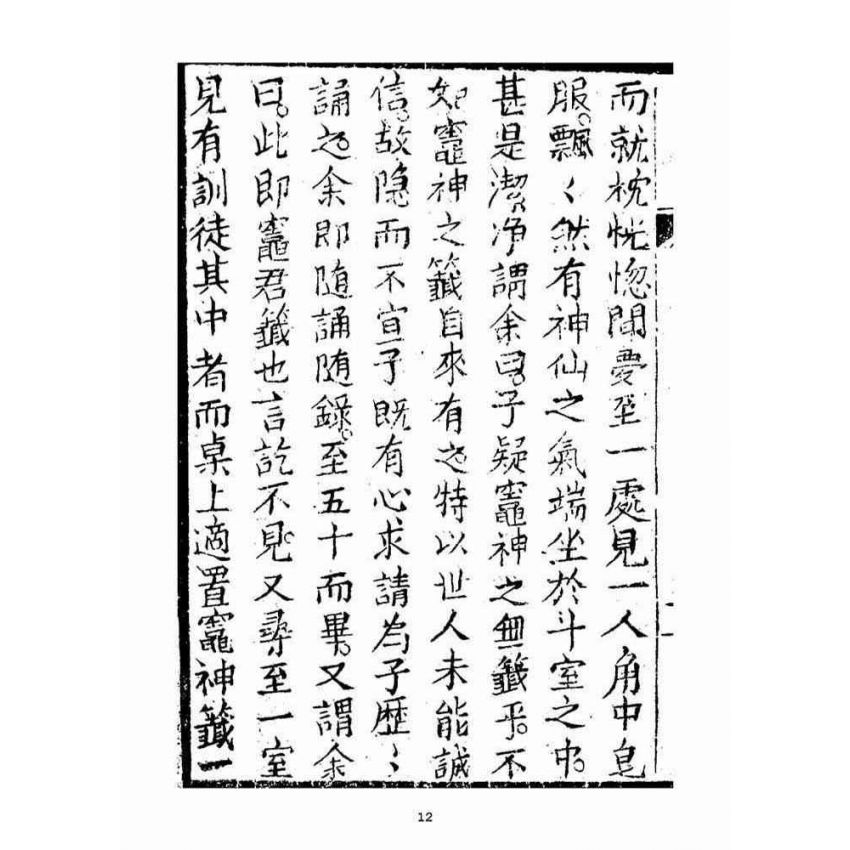 而就枕恍惚間夢至一處見一人角巾皂
服。飄〻然有神仙之氣端坐於斗室之中。
甚是潔净謂余曰。子疑竈神之無籤乎。不
知竈神之籤自來有之特以世人未能誠
信。故隐而不宣子既有心求請为子歷〻
誦之余即随誦随錄。至五十而畢。又謂余
曰。此即竈君籤也言訖不見。又尋至一室
見有訓徒其中者而桌上適置竈神籤一
12